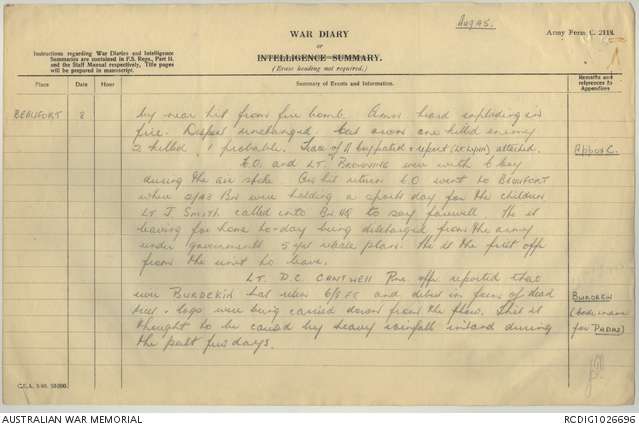 Aug 45.
WAR DIARY
or
INTELLIGENCE SUMMARY.
(Erase heading not required.)
Army Form C. 2118.
Instructions regarding War Diaries and Intelligence
Summaries are contained in F.S. Regs., Part II.
and the Staff Manual respectively. Title pages
will be prepared in manuscript.
Place Date Hour Summary of Events and Information. Remarks and references to Appendices
BEAUFORT 8 by near hit from fire bomb. Ammo heard exploding in
fire. Dispos unchanged. Cas own one killed enemy
2 killed, 1 probable. Trace of A Coy patrol + report attached. Appx C.
C.O. and LT. BROWNING were with C Coy
during the air strike. On his return C.O went to BEAUFORT
where 2/43 BN were holding a sports day for the children
LT J SMITH called into BN HQ to say farewell. He is
leaving for home to-day being discharged from the army
under governments 5 year plan. He is the first offr
from the unit to leave.
LT. D.C. CANTWELL Pnr. offr reported that
river BURDEKIN had risen 6/8 FT and debris in form of dead
trees + logs were being carried down from the flow. This is
thought to be caused by heavy rainfall inland during
the past few days.
BURDEKIN
(code name
for PADAS)
AUSTRALIAN WAR MEMORIAL
RCDIG1026696